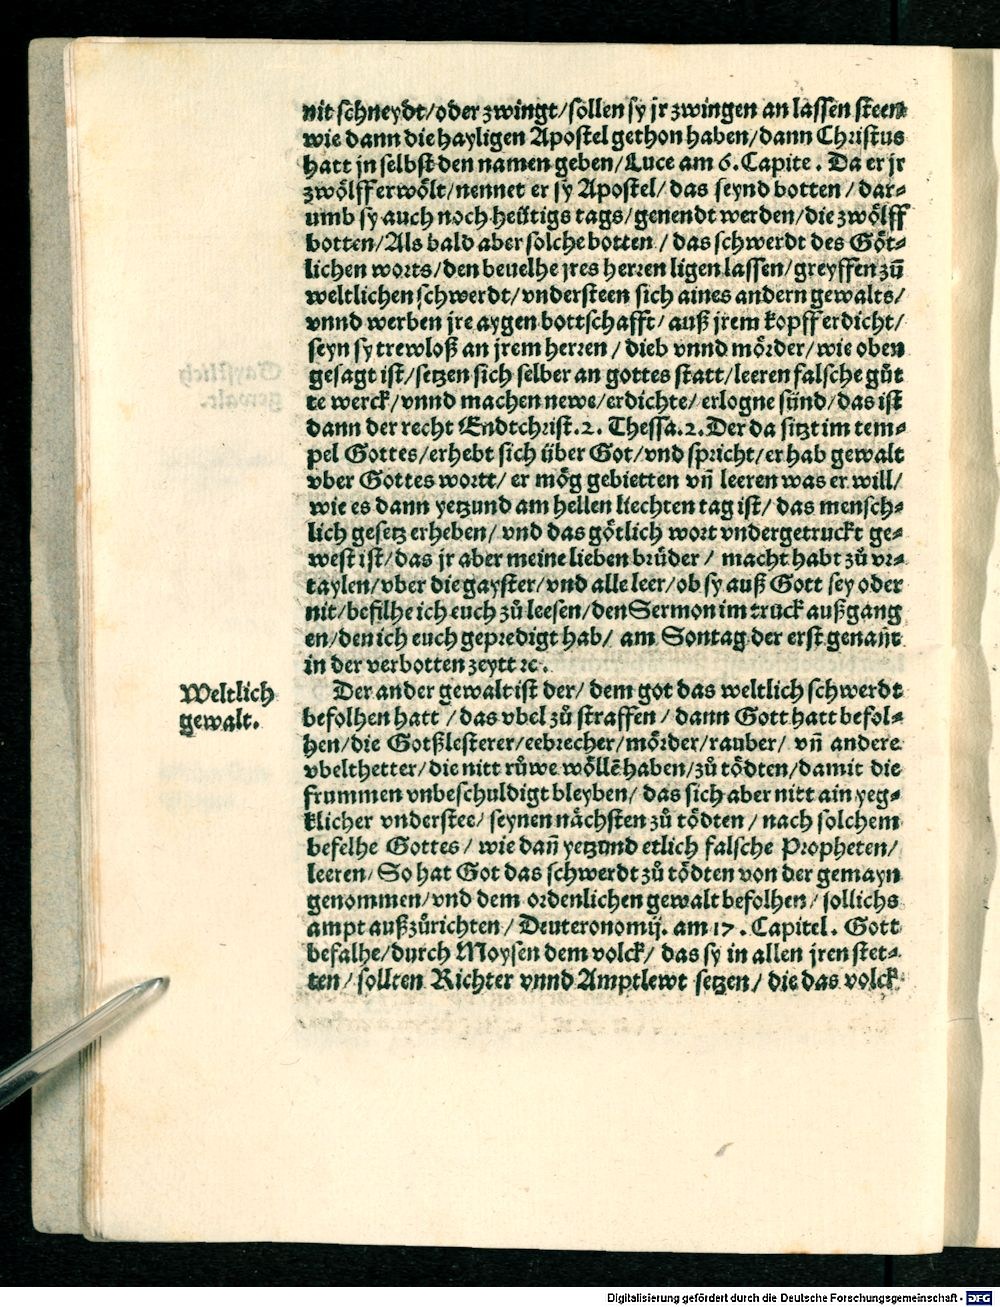 nit schneydt/oder zwingt/sollen sy jr zwingen an lassen steen
wie dann die hayligen Apostel gethon haben/dann Christus
hatt jn selbst den namen geben/Luce am 6.Capite. Da er jr
zwölff erwölt/nennet er sy Apostel/das seynd botten/dar⸗
umb sy auch noch heütigs tags/genendt werden/die zwölff
botten/Als bald aber solche botten/das schwerdt des Göt⸗
lichen worts/den beuelhe jres herren ligen lassen/greyffen zů
weltlichen schwerdt/vndersteen sich aines andern gewalts/
vnnd werben jre aygen bottschafft/auß jrem kopff erdicht/
seyn sy trewloß an jrem herren/dieb vnnd mörder/wie oben
gesagt ist/setzen sich selber an gottes statt/leeren falsche gůt
te werck/vnnd machen newe/erdichte/erlogne sünd/das ist
dann der recht Endtchrist.2. Thessa.2.Der da sitzt im tem⸗
pel Gottes/erhebt sich über Got/vnd spricht/er hab gewalt
vber Gottes wortt/er mög gebietten vñ leeren was er will/
wie es dann yetzund am hellen liechten tag ist/das mensch⸗
lich gesetz erheben/vnd das götlich wort vndergetruckt ge⸗
west ist/das jr aber meine lieben brüder/macht habt zů vr⸗
taylen/vber die gayster/vnd alle leer/ob sy auß Gott sey oder
nit/befilhe ich euch zů leesen/den Sermon im truck außgang
en/den ich euch gepredigt hab/am Sontag der erst genañt
in der verbotten zeytt ꝛc.
Weltlich
gewalt.
Der ander gewalt ist der/dem got das weltlich schwerdt
befolhen hatt/das vbel zů straffen/dann Gott hatt befol⸗
hen/die Gotßlesterer/eebrecher/mörder/rauber/vñ andere
vbelthetter/die nitt růwe wöllẽ haben/zů tödten/damit die
frummen vnbeschuldigt bleyben/das sich aber nitt ain yeg⸗
klicher vnderstee/seynen nächsten zů tödten/nach solchem
befelhe Gottes/wie dañ yetzund etlich falsche Propheten/
leeren/So hat Got das schwerdt zů tödten von der gemayn
genommen/vnd dem ordenlichen gewalt befolhen/sollichs
ampt außzůrichten/Deuteronomij. am 17. Capitel. Gott
befalhe/durch Moysen dem volck/das sy in allen jren stet⸗
ten/sollten Richter vnnd Amptlewt setzen/die das volck
Digitalisierung gefördert durch die Deutsche Forschungsgemeinschaft - DFG